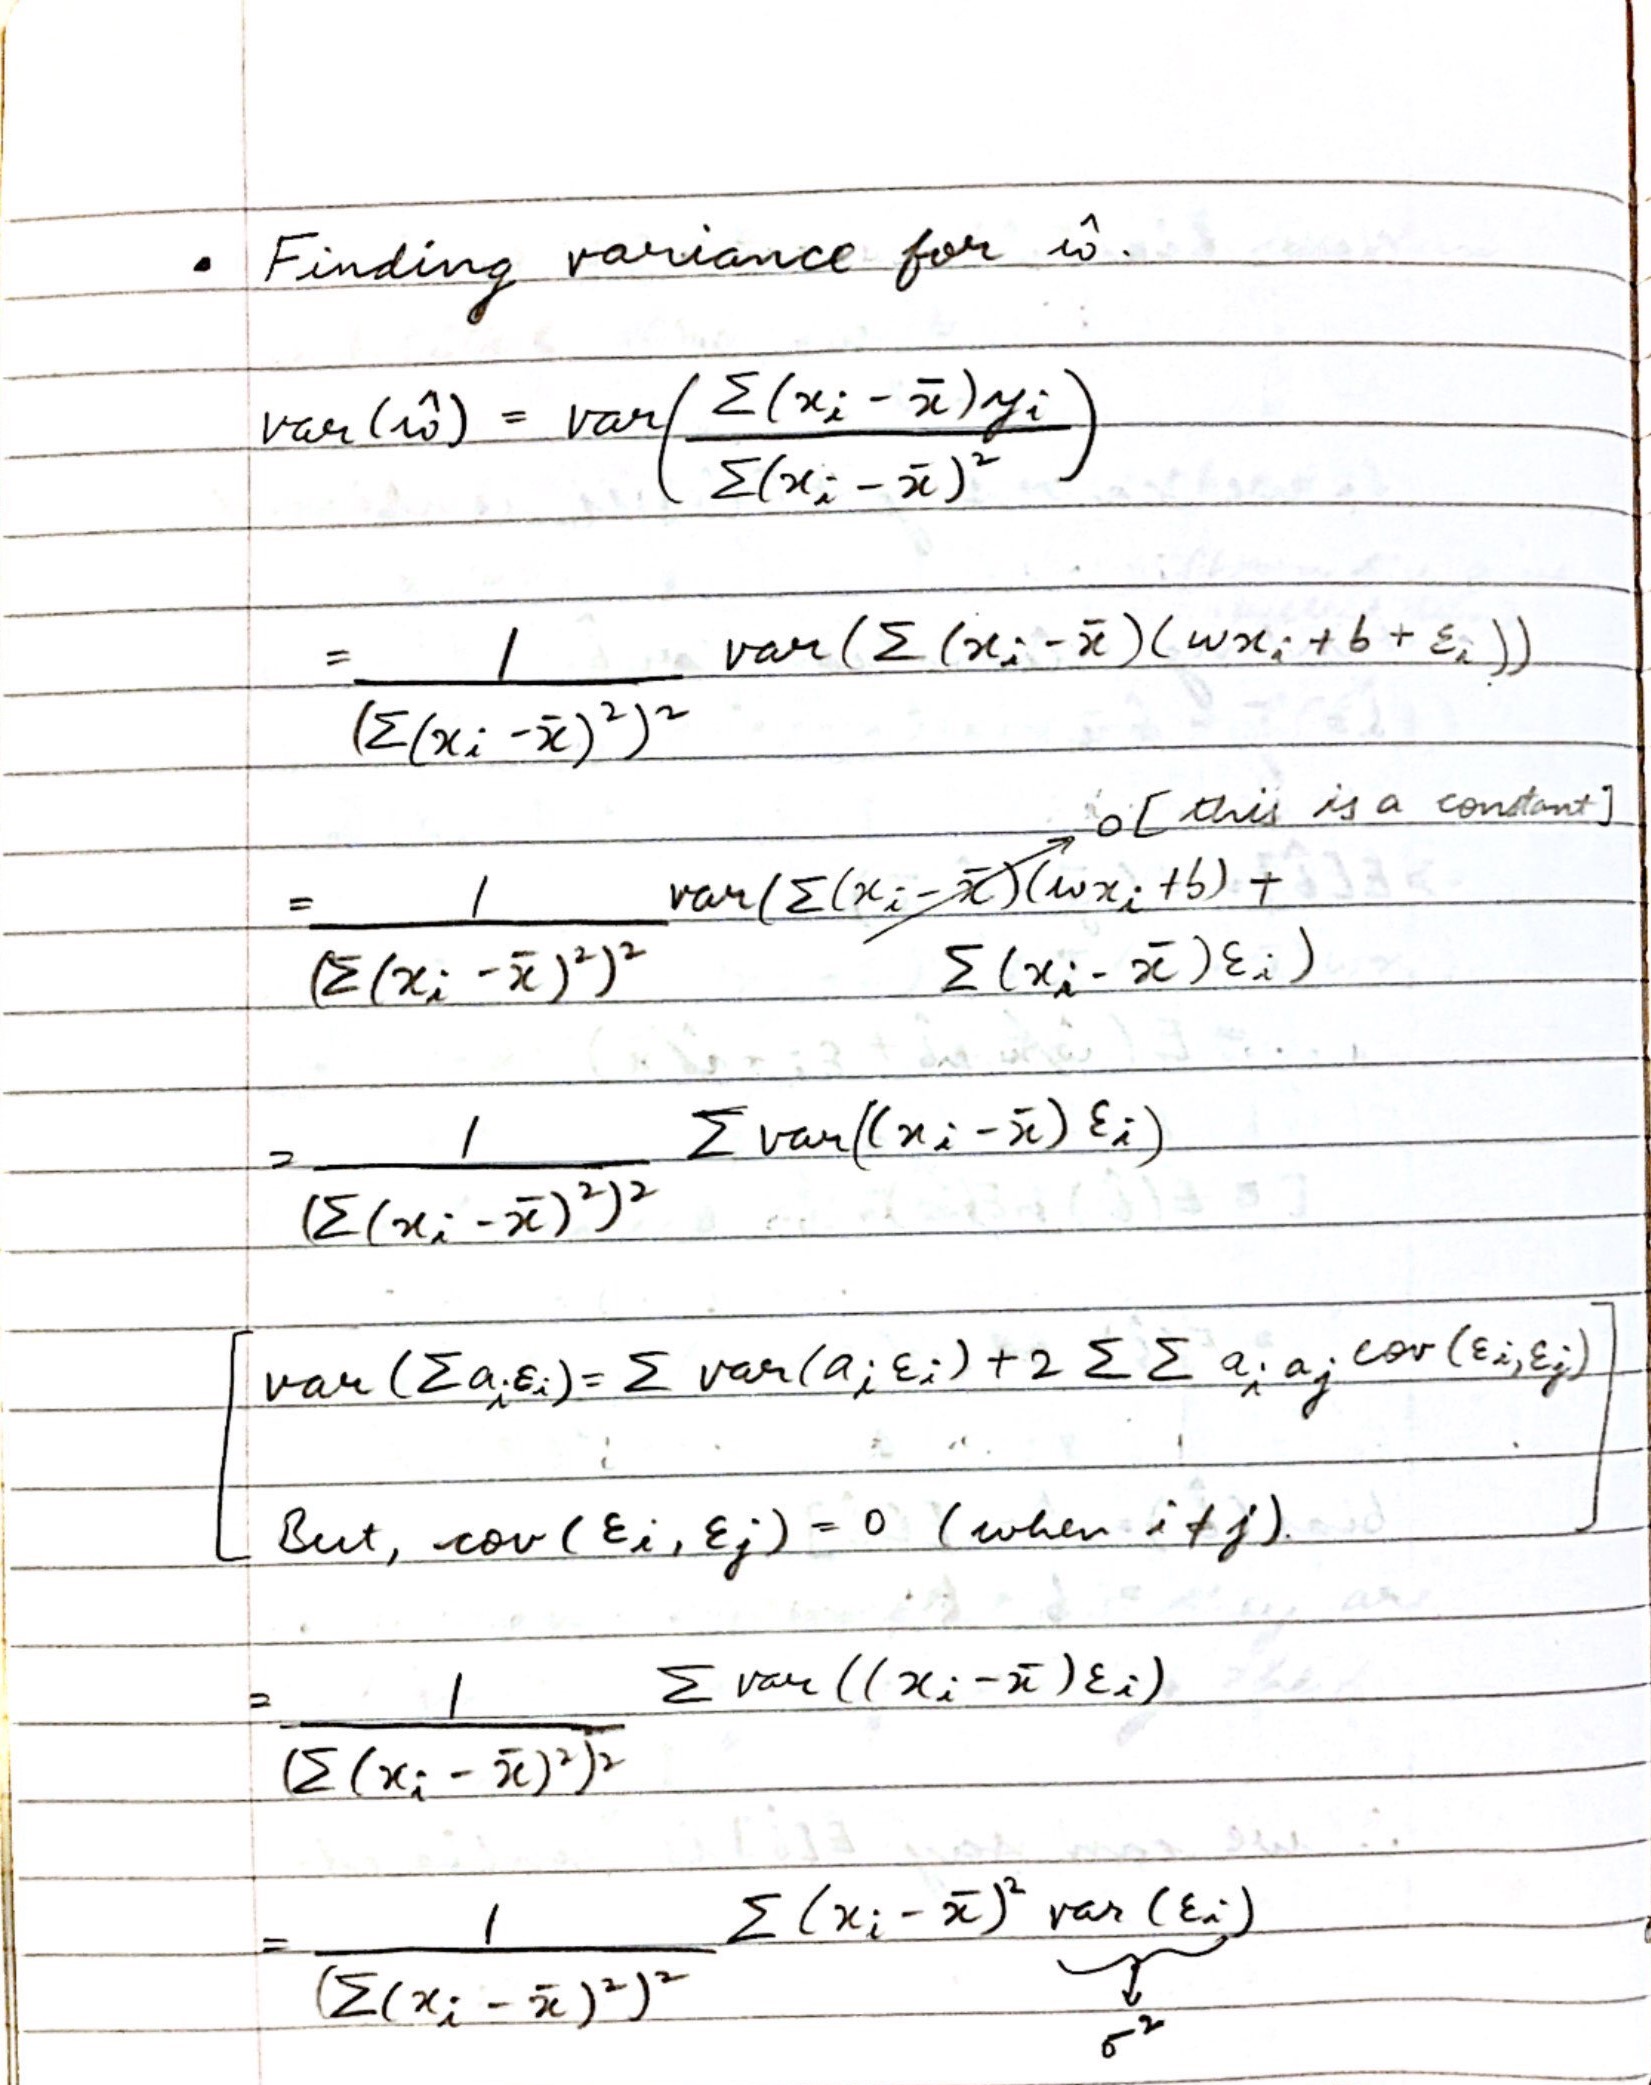 • Finding variance for ŵ.
var(ŵ) = var( Σ(xᵢ - x̄)yᵢ / Σ(xᵢ - x̄)² )
= 1 / (Σ(xᵢ - x̄)²)² var(Σ(xᵢ - x̄)(wxᵢ + b + εᵢ))
0 [this is a constant]
= 1 / (Σ(xᵢ - x̄)²)² var(Σ(xᵢ - x̄)(wxᵢ + b) +
Σ(xᵢ - x̄)εᵢ)
= 1 / (Σ(xᵢ - x̄)²)² Σ var((xᵢ - x̄)εᵢ)
[ var(Σaᵢεᵢ) = Σ var(aᵢεᵢ) + 2 Σ Σ aᵢ aⱼ cov(εᵢ, εⱼ)
But, cov(εᵢ, εⱼ) = 0 (when i ≠ j). ]
= 1 / (Σ(xᵢ - x̄)²)² Σ var((xᵢ - x̄)εᵢ)
= 1 / (Σ(xᵢ - x̄)²)² Σ(xᵢ - x̄)² var(εᵢ)
↓
σ²